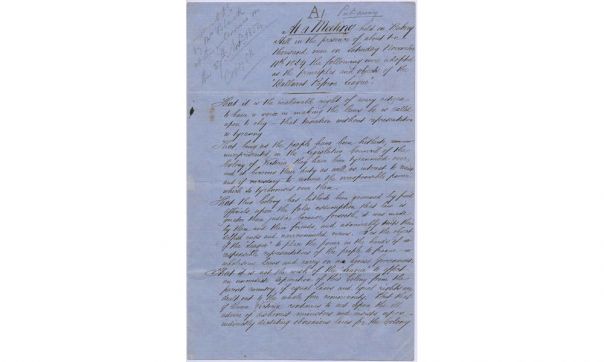 A1
At a Meeting held on Bakery
Hill in the presence of about ten
thousand men on Saturday November
11th 1854 the following were adopted
as the principles and objects of the
"Ballaarat Reform League".
That it is the inalienable right of every citizen
to have a voice in making the laws he is called
upon to obey – that taxation without representation
is tyranny
That, being as the people have been hitherto,
unrepresented in the Legislative Council of the
Colony of Victoria, they have been tyrannised over,
and it becomes their duty as well as interest to resist
and if necessary to remove the irresponsible power
which so tyrannises over them.
That this Colony has hitherto been governed by paid
officials upon the false assumption that law is
greater than justice because, forsooth, it was made
by them and their friends, and admirably suits their
selfish ends and narrow minded views. It is the object
of the "League" to place the power in the hands of
responsible representatives of the people to frame
wholesome laws and carry on an honest Government
That it is not the wish of the "League" to effect
an immediate separation of this Colony from the
parent country, if equal laws and equal rights are
dealt out to the whole free community. But that
if Queen Victoria continues to act upon the ill
advice of dishonest ministers and insists upon
indirectly dictating obnoxious laws for the Colony